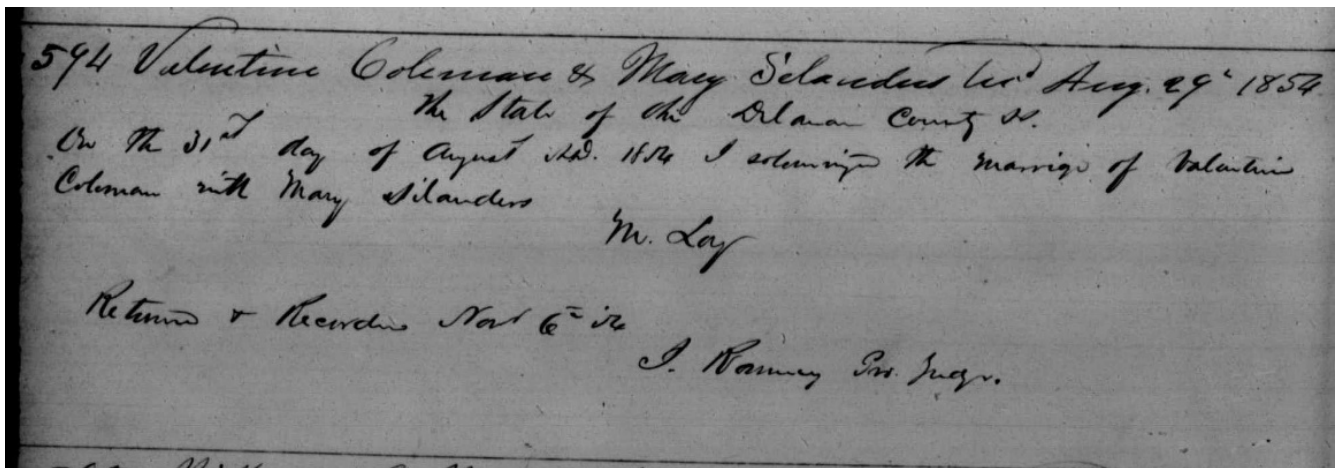 594 Valentine Coleman & Mary Silanders Lic'd Aug. 29th 1854
The State of Ohio Delaware County ss.
On the 31st day of August A.D. 1854 I solemnized the marriage of Valentine
Coleman with Mary Silanders
M. Loy
Returned & Recorded Novr 6th 54
J. Ranney Pro. Judge.